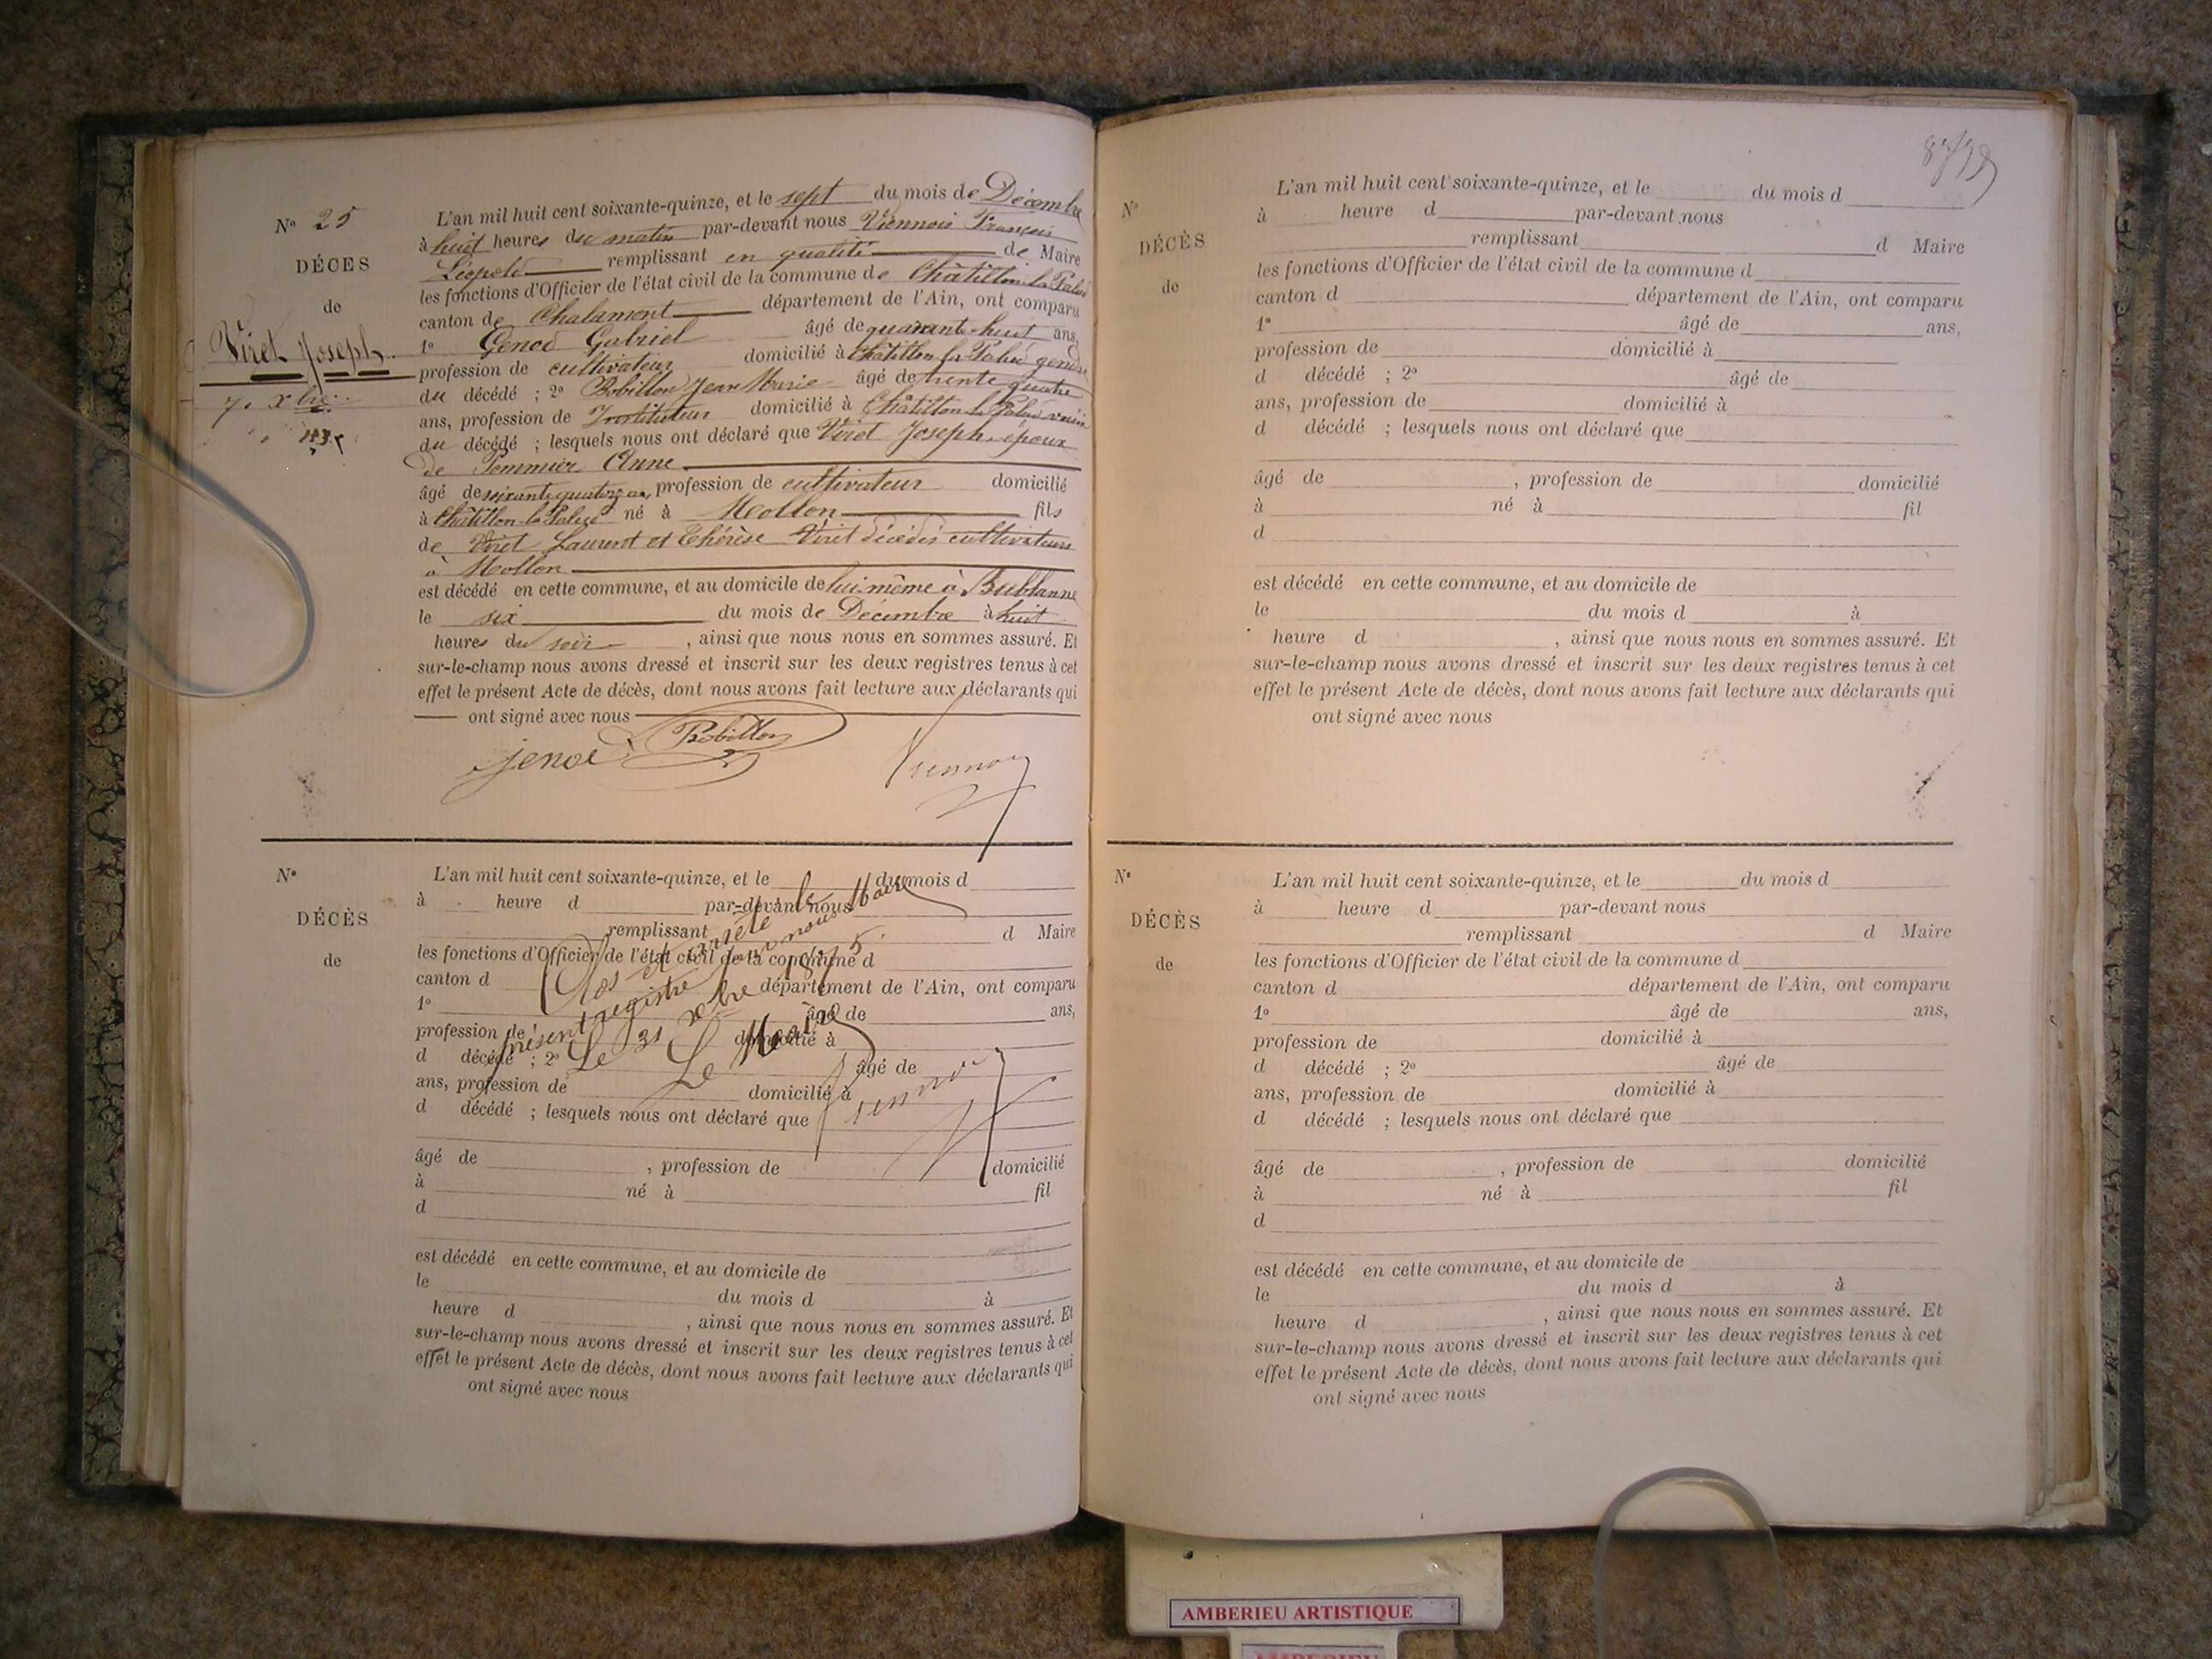 Nº 25
DÉCES
de
Viret Joseph
7. Xbre
L'an mil huit cent soixante-quinze, et le sept du mois de Décembre
à huit heures du matin par-devant nous Viennois François
Léopold remplissant en qualité de Maire
les fonctions d'Officier de l'état civil de la commune de Châtillon la Palud
canton de Chalamont département de l'Ain, ont comparu
1º Genod Gabriel âgé de quarante-huit ans,
profession de cultivateur domicilié à Châtillon la Palud gendre
du décédé ; 2º Bobillon Jean Marie âgé de trente quatre
ans, profession de Instituteur domicilié à Châtillon la Palud voisin
du décédé ; lesquels nous ont déclaré que Viret Joseph époux
de Pommier Anne
âgé de soixante quatorze ans, profession de cultivateur domicilié
à Châtillon-la-Palud né à Mollon fils
de Viret Laurent et Thérèse Viret décédés cultivateurs
à Mollon
est décédé en cette commune, et au domicile de lui-même à Bublanne
le six du mois de Décembre à huit
heures du soir , ainsi que nous nous en sommes assuré. Et
sur-le-champ nous avons dressé et inscrit sur les deux registres tenus à cet
effet le présent Acte de décès, dont nous avons fait lecture aux déclarants qui
ont signé avec nous
jenod Bobillon Viennois
Nº
DÉCÈS
de
L'an mil huit cent soixante-quinze, et le du mois d
à heure d par-devant nous
remplissant d Maire
les fonctions d'Officier de l'état civil de la commune d
canton d département de l'Ain, ont comparu
1º âgé de ans,
profession de domicilié à
d décédé ; 2º âgé de
ans, profession de domicilié à
d décédé ; lesquels nous ont déclaré que
âgé de , profession de domicilié
à né à fil
d
est décédé en cette commune, et au domicile de
le du mois d à
heure d , ainsi que nous nous en sommes assuré. Et
sur-le-champ nous avons dressé et inscrit sur les deux registres tenus à cet
effet le présent Acte de décès, dont nous avons fait lecture aux déclarants qui
ont signé avec nous
Clos et arrêté le
présent registre par nous Maire
Le 31 Xbre 1875.
Le Maire
Viennois
Nº
DÉCÈS
de
L'an mil huit cent soixante-quinze, et le du mois d
à heure d par-devant nous
remplissant d Maire
les fonctions d'Officier de l'état civil de la commune d
canton d département de l'Ain, ont comparu
1º âgé de ans,
profession de domicilié à
d décédé ; 2º âgé de
ans, profession de domicilié à
d décédé ; lesquels nous ont déclaré que
âgé de , profession de domicilié
à né à fil
d
est décédé en cette commune, et au domicile de
le du mois d à
heure d , ainsi que nous nous en sommes assuré. Et
sur-le-champ nous avons dressé et inscrit sur les deux registres tenus à cet
effet le présent Acte de décès, dont nous avons fait lecture aux déclarants qui
ont signé avec nous
Nº
DÉCÈS
de
L'an mil huit cent soixante-quinze, et le du mois d
à heure d par-devant nous
remplissant d Maire
les fonctions d'Officier de l'état civil de la commune d
canton d département de l'Ain, ont comparu
1º âgé de ans,
profession de domicilié à
d décédé ; 2º âgé de
ans, profession de domicilié à
d décédé ; lesquels nous ont déclaré que
âgé de , profession de domicilié
à né à fil
d
est décédé en cette commune, et au domicile de
le du mois d à
heure d , ainsi que nous nous en sommes assuré. Et
sur-le-champ nous avons dressé et inscrit sur les deux registres tenus à cet
effet le présent Acte de décès, dont nous avons fait lecture aux déclarants qui
ont signé avec nous
AMBERIEU ARTISTIQUE
AMBERIEU